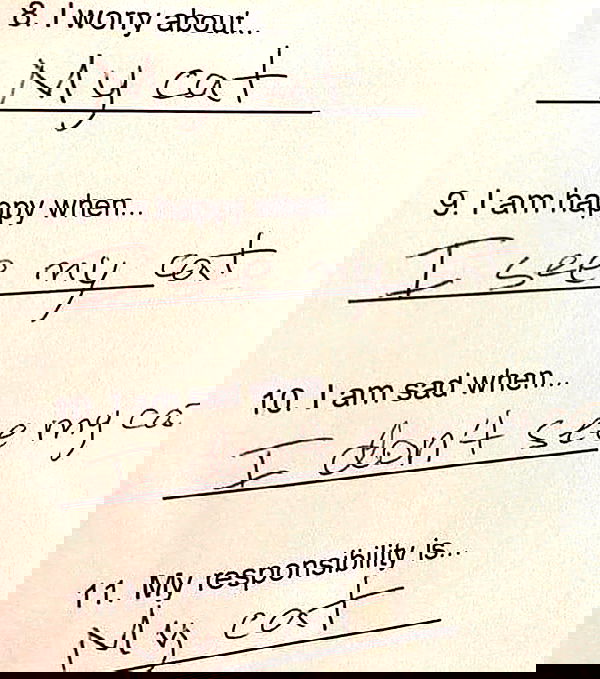 8. I worry about...
My cat
ppy when...
see my cat
9. I am happy when...
I see
e my ca
10. I am sad when...
I don't see
11. My responsibility is...
My cat